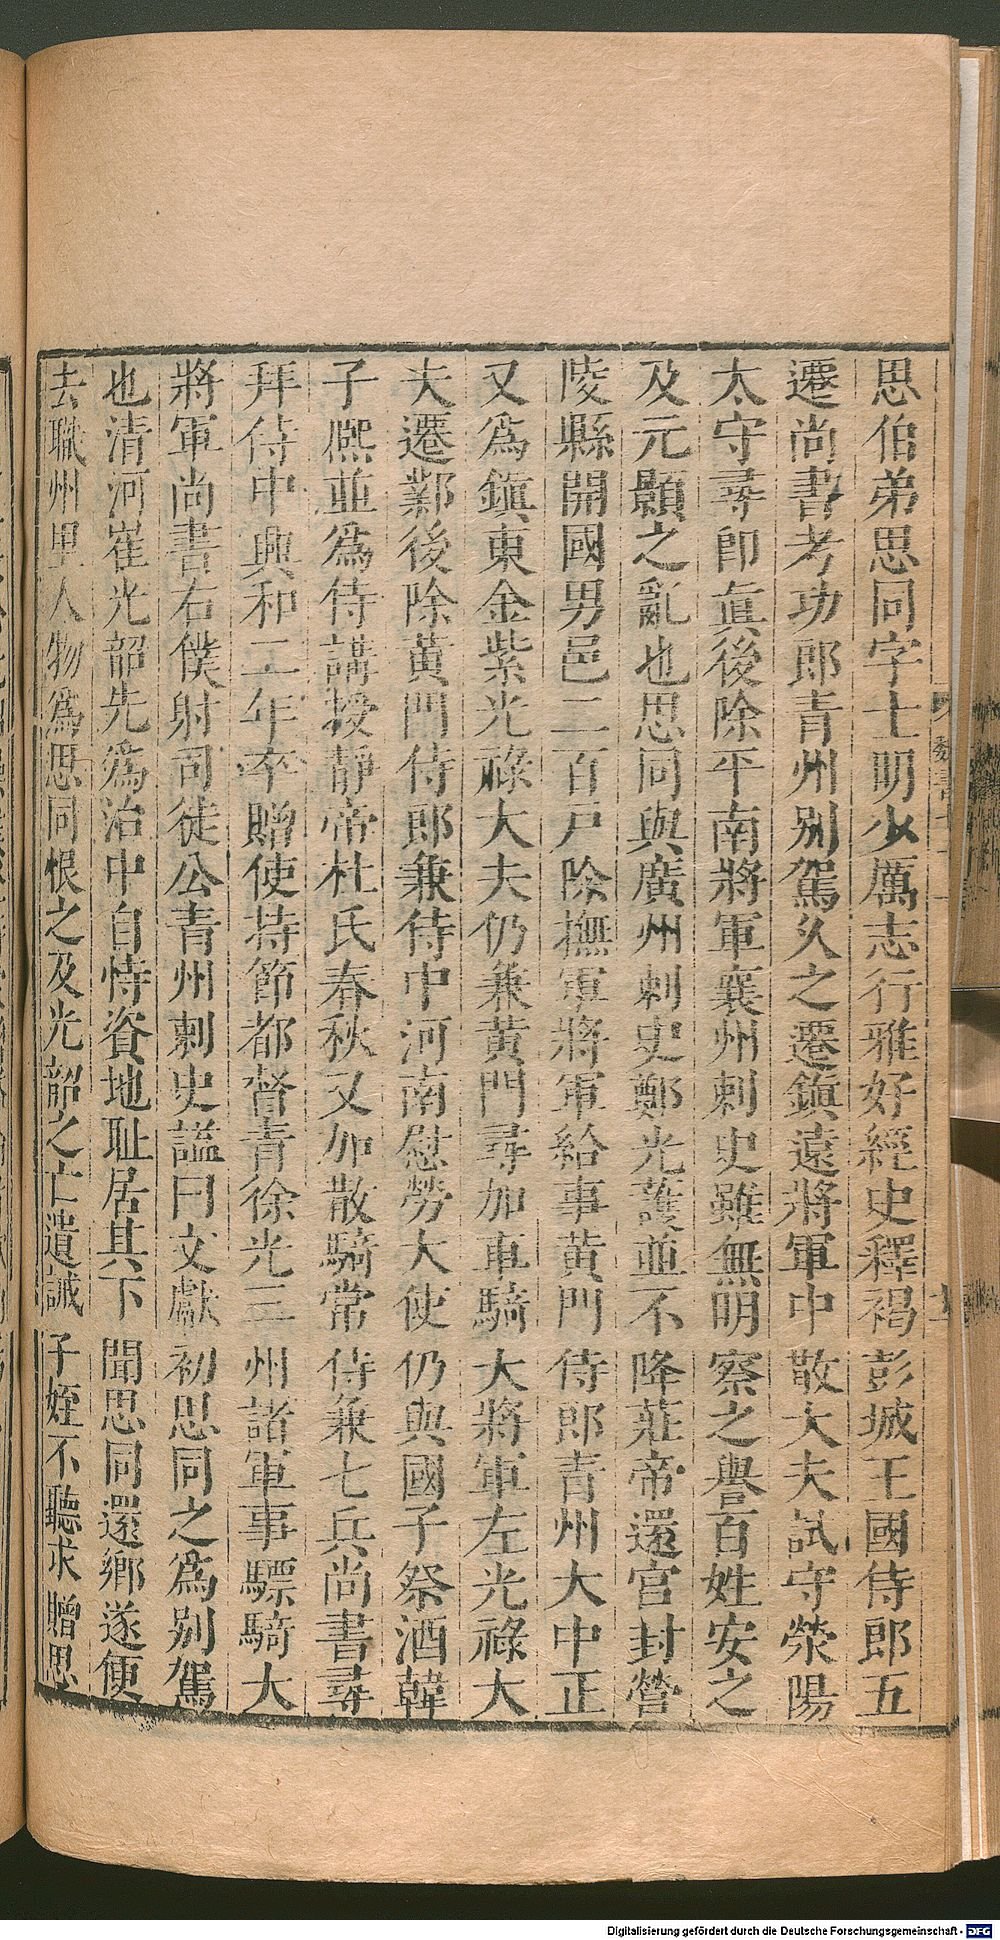 思伯弟思同字士明少厲志行雅好經史釋褐彭城王國侍郎五
遷尚書考功郎青州別駕久之遷鎭遠將軍中散大夫試守滎陽
太守尋卽眞後除平南將軍襄州刺史雖無明察之譽百姓安之
及元顥之亂也思同與廣州刺史鄭光護並不降莊帝還宮封營
陵縣開國男邑二百戸除撫軍將軍給事黃門侍郎青州大中正
又爲鎭東金紫光祿大夫仍兼黃門尋加車騎大將軍左光祿大
夫遷鄴後除黃門侍郎兼侍中河南慰勞大使仍與國子祭酒韓
子熙並爲侍講授靜帝杜氏春秋又加散騎常侍兼七兵尚書尋
拜侍中興和二年卒贈使持節都督青徐光三州諸軍事驃騎大
將軍尚書右僕射司徒公青州刺史諡曰文獻初思同之爲別駕
也清河崔光韶先爲治中自恃資地耻居其下聞思同還鄉遂便
去職州里人物爲思同恨之及光韶之亡遺誡子姪不聽求贈思
魏書
Digitalisierung gefördert durch die Deutsche Forschungsgemeinschaft - DFG